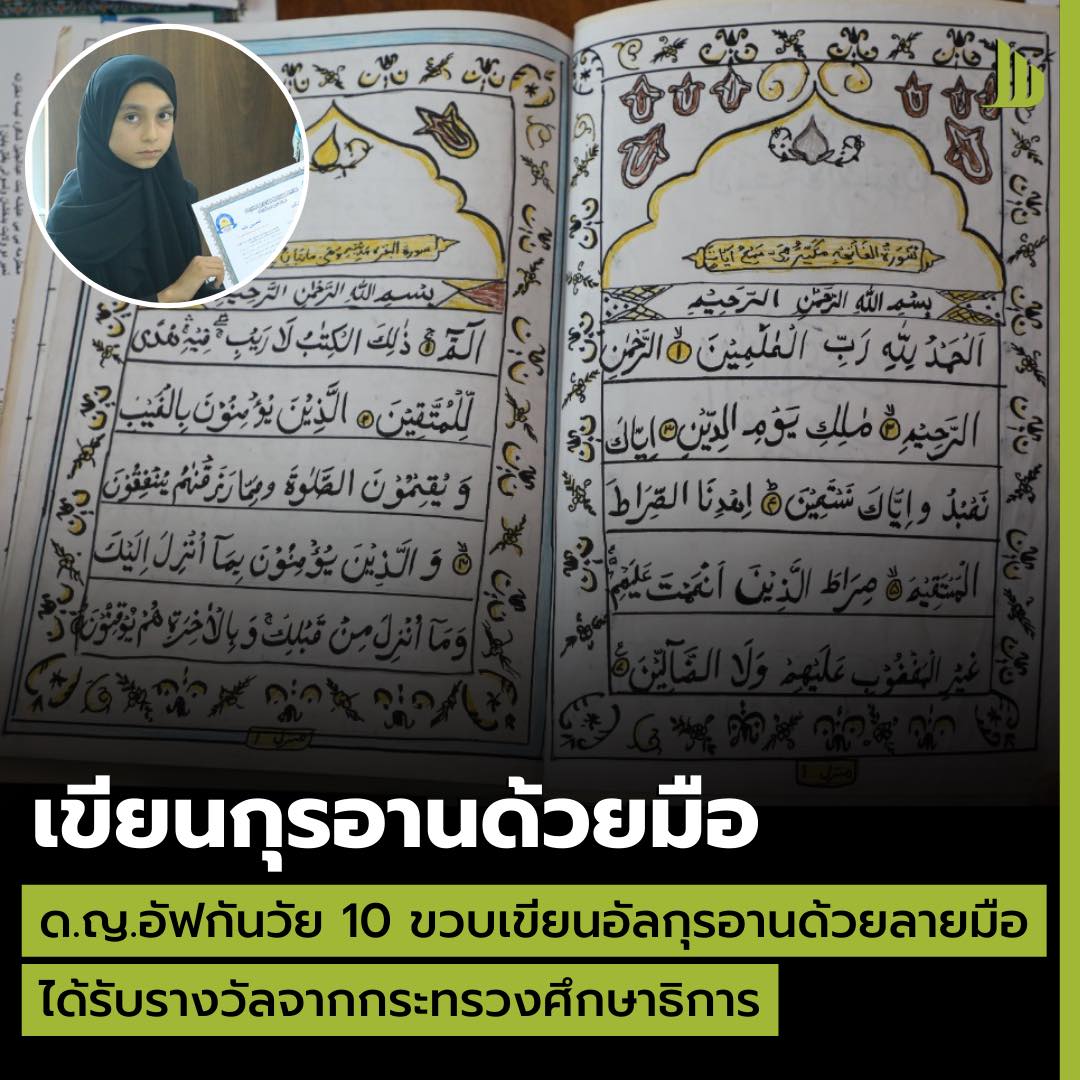 سورة الفاتحة مكية وهي سبع آيات
بسم الله الرحمن الرحيم
اَلْحَمْدُ لِلّٰهِ رَبِّ الْعٰلَمِيْنَ ۱ الرَّحْمٰنِ
الرَّحِيْمِ ۲ مٰلِكِ يَوْمِ الدِّيْنِ ۳ اِيَّاكَ
نَعْبُدُ وَاِيَّاكَ نَسْتَعِيْنُ ۴ اِهْدِنَا الصِّرَاطَ
الْمُسْتَقِيْمَ ۵ صِرَاطَ الَّذِيْنَ اَنْعَمْتَ عَلَيْهِمْ
غَيْرِ الْمَغْضُوْبِ عَلَيْهِمْ وَلَا الضَّآلِّيْنَ
منزل ۱
سورة البقرة
بسم الله الرحمن الرحيم
الٓمّٓ ۱ ذٰلِكَ الْكِتٰبُ لَا رَيْبَ فِيْهِ هُدًى
لِّلْمُتَّقِيْنَ ۲ الَّذِيْنَ يُؤْمِنُوْنَ بِالْغَيْبِ
وَ يُقِيْمُوْنَ الصَّلٰوةَ وَمِمَّا رَزَقْنٰهُمْ يُنْفِقُوْنَ
۳ وَ الَّذِيْنَ يُؤْمِنُوْنَ بِمَآ اُنْزِلَ اِلَيْكَ
وَمَآ اُنْزِلَ مِنْ قَبْلِكَ وَ بِالْاٰخِرَةِ هُمْ يُوْقِنُوْنَ
منزل ۱
เขียนกุรอานด้วยมือ
ด.ญ.อัฟกันวัย 10 ขวบเขียนอัลกุรอานด้วยลายมือ
ได้รับรางวัลจากกระทรวงศึกษาธิการ